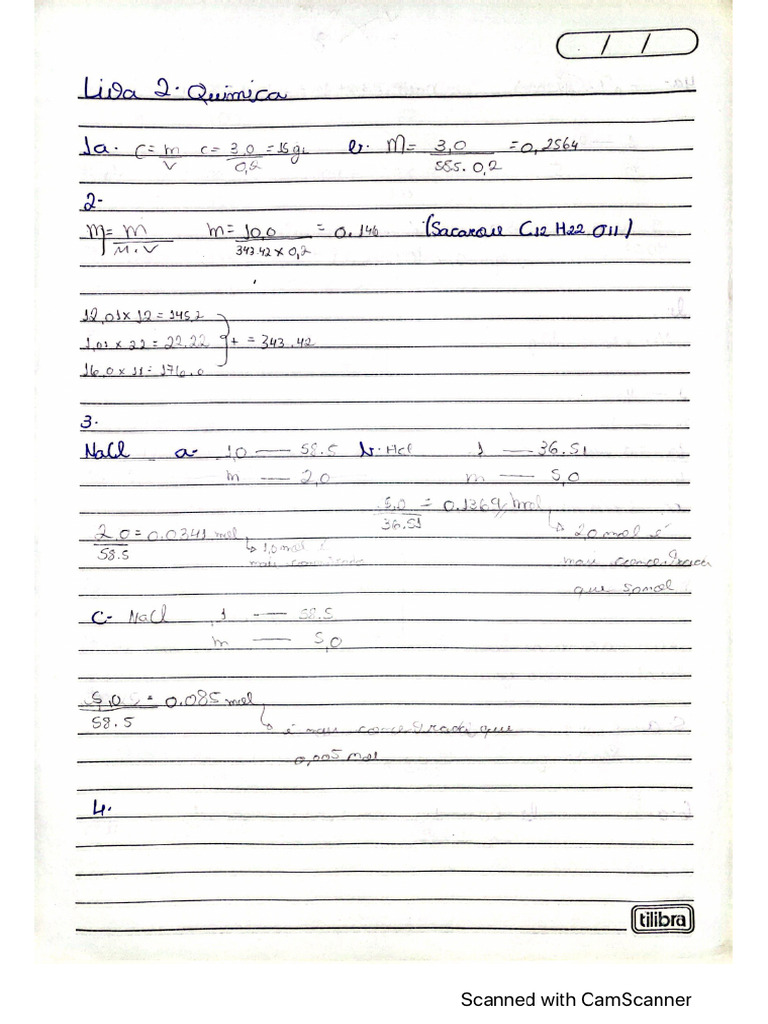 / /
Lista 2. Química
1a. C = m/V C = 3,0/0,2 = 15g/L b. M = 3,0/585.0,2 = 0,2564
2-
M = m/M.V m = 10,0/343.42 x 0,2 = 0.146 (Sacarose C12 H22 O11)
12,01 x 12 = 145,2
1,01 x 22 = 22.22 } + = 343.42
16,0 x 11 = 176.0
3.
NaCl a- 1,0 — 58.5 b. Hcl 1 — 36.51
m — 2,0 m — 5,0
5,0/36.51 = 0.1369/mol
2,0/58.5 = 0.0341 mol ↳ 1,0 mol é mais concentrada ↳ 2,0 mol é
mais concentrada
que 5,0mol
C- NaCl 1 — 58.5
m — 5,0
5,0/58.5 = 0.085 mol
↳ é mais concentrado que
0,005 mol
4.
tilibra
Scanned with CamScanner